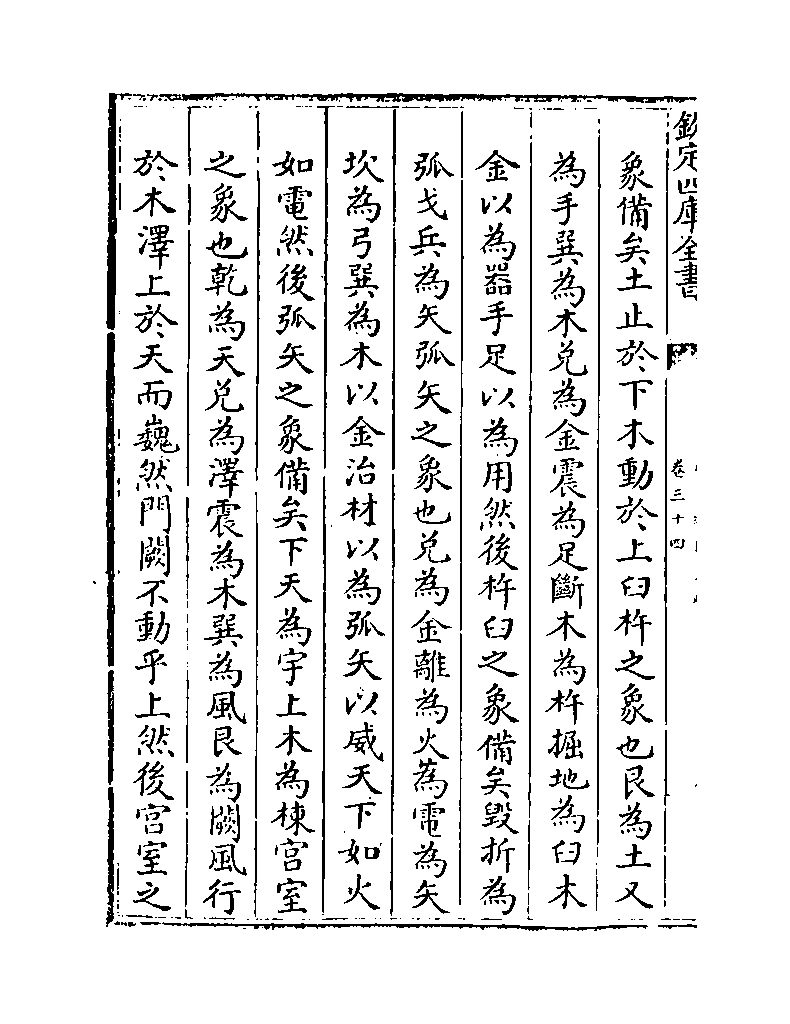 欽定四庫全書
卷三十四
象備矣土止於下木動於上臼杵之象也艮為土又
為手巽為木兑為金震為足斷木為杵掘地為臼木
金以為器手足以為用然後杵臼之象備矣毁折為
弧戈兵為矢弧矢之象也兑為金離為火為電為矢
坎為弓巽為木以金治材以為弧矢以威天下如火
如電然後弧矢之象備矣下天為宇上木為棟宫室
之象也乾為天兑為澤震為木巽為風艮為闕風行
於木澤上於天而巍然門闕不動乎上然後宫室之